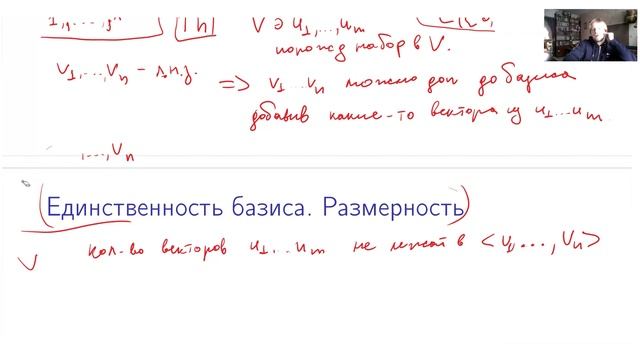 V ∋ u₁,...,uₘ
порожд набор в V.
v₁,...,vₙ – л.н.з.
⇒ v₁...vₙ можно доп до базиса
добавив какие-то вектора из u₁...uₘ
...,vₙ
Единственность базиса. Размерность
V
кол-во векторов u₁...uₘ не лежат в <v₁,...,vₙ>